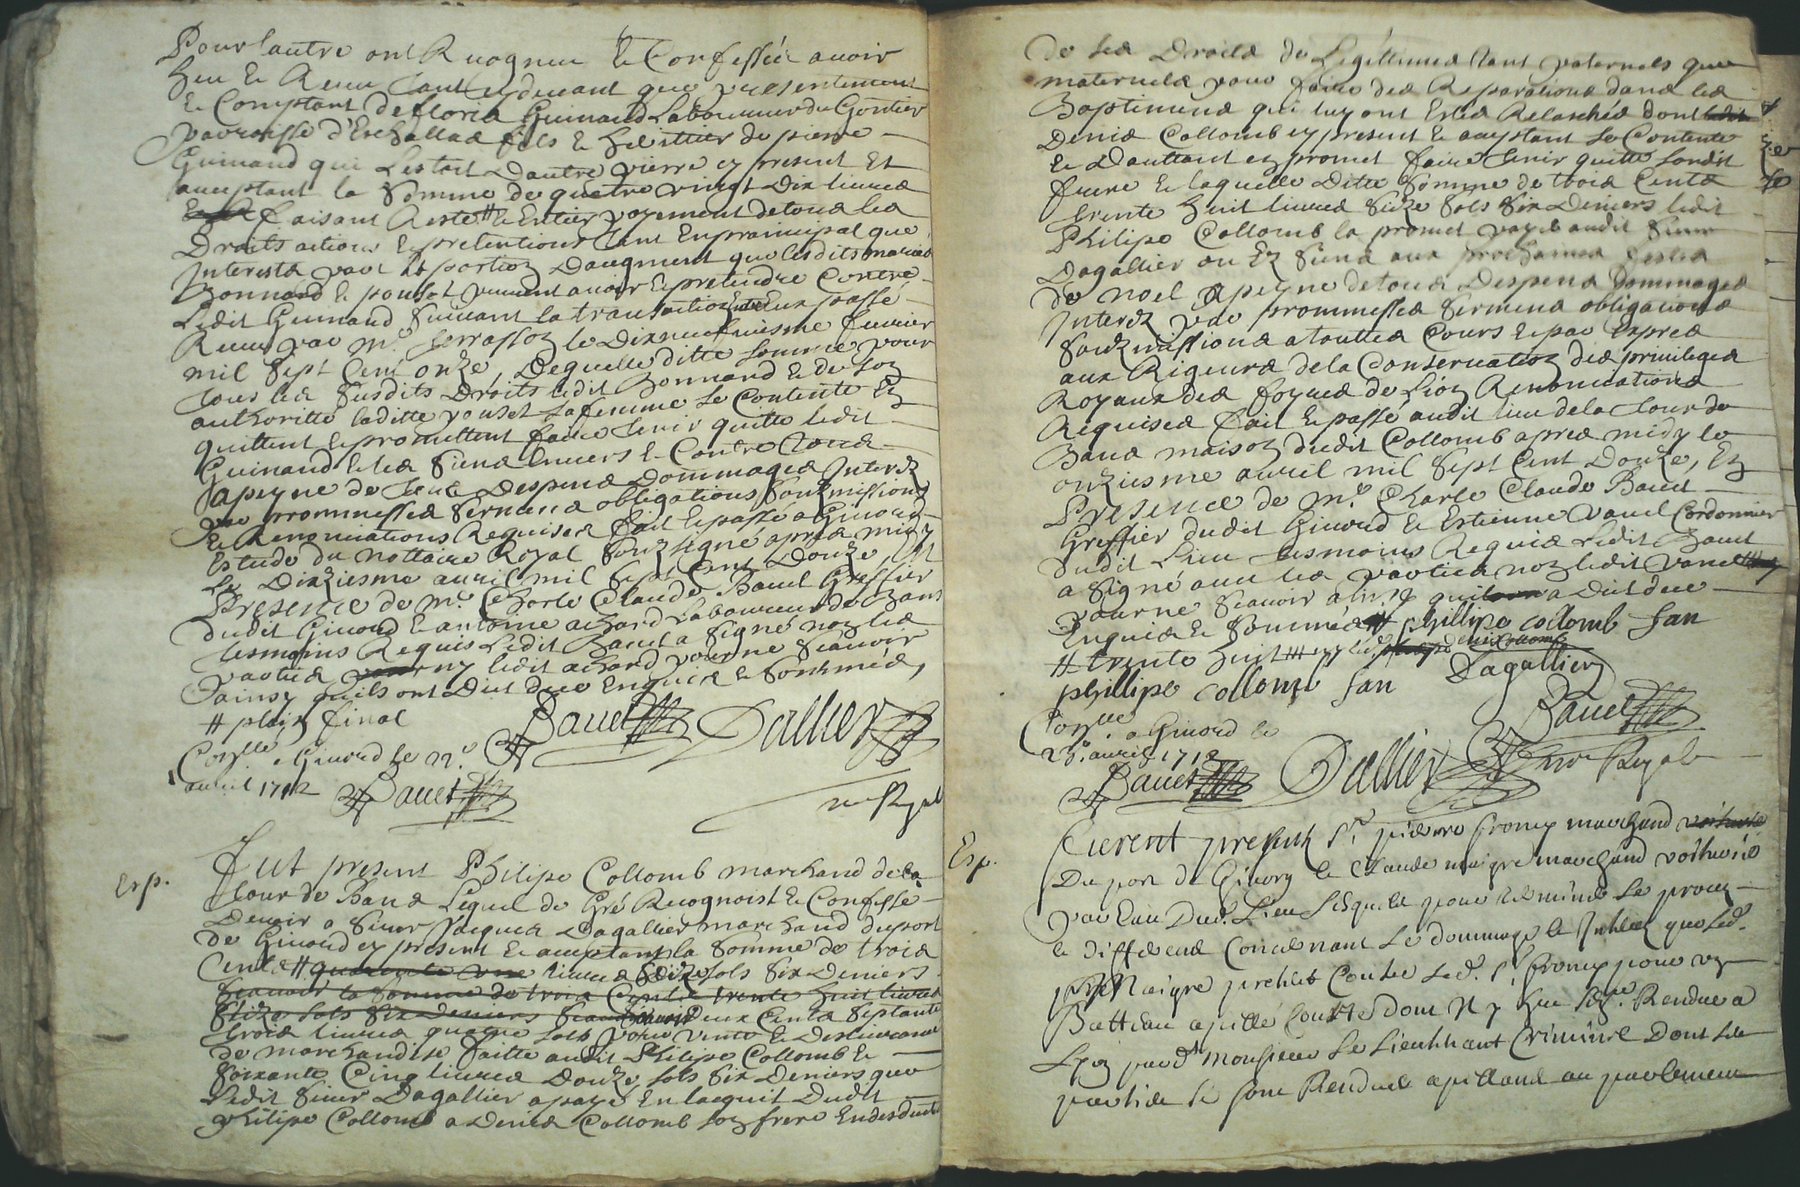 Pour lautre ont Recogneu & Confessé avoir
heu & Receu tant cy devant que presentement
& Comptant de floris Guinand Laboureur du Gontier
parroisse d'Eschallas fils & heritier de pierre
Guinand qui lestoit dautre pierre cy present Et
acceptant la somme de quatre vingt Dix livres
faisant Reste # & Entier payement de tous les
Droits actions & pretentions tant En principal que
Interests par la portion Daugment que lesdits mariés
Bonnard & pouset peuvent avoir & pretendre Contre
Ledit Guinand suivant la transaction Entre Eux passé
Receu par Me terrasson le Dixneufviesme fevrier
mil sept Cent onze, De quelle ditte somme pour
tous les susdits Droits ledit Bonnard & de son
authoritté laditte pouset sa femme se Contente En
quittent & promettent faire tenir quitte ledit
Guinand & les siens Envers & Contre tous
a peyne de tous Despens Dommages Interez
par prommesses sermens obligations soubzmissions
& Renonciations Requises fait & passé a Givord
Estude du nottaire Royal soubzsigné apres midy
Le Dixiesme avril mil sept Cent Douze, En
Presence de Me Charle Claude Bavet Greffier
dudit Givord & antoine achard Laboureur de Bans
tesmoins Requis Ledit Bavet a signé non les
parties ny ledit achard pour ne scavoir
ainsy quils ont Dit de ce Enquis & sommés,
# plain final
Bavet Dallier
Conlle a Givord le 22e
avril 1712 Bavet
nre Royal
Esp.
Fut present Philipe Collomb marchand de la
tour de Bans Lequel de Gré Recognoist & Confesse
Devoir a sieur Jacques Dagallier marchand du port
de Givord cy present & acceptant la somme de trois
Cents # quarante une livres seize sols six Deniers
scavoir la somme de trois Cents trente huit livres
seize sols six Deniers scavoir Deux Cents septante
trois livres quatre sols pour vente & Deslivrance
de marchandise faitte audit Philipe Collomb &
soixante Cinq livres Douze sols six Deniers que
Ledit sieur Dagallier a payé En lacquit Dudit
Philipe Collomb a Denis Collomb son frere En deduction
de ses Droits de Legittimes tant paternels que
maternels pour faire des Reparations dans les
Bastimens qui luy ont Estés Relaschés dont ledit
Denis Collomb cy present & acceptant se Contente
& Dauttant en promet faire tenir quitte sondit
frere & laquelle Ditte somme de trois Cents
trente huit livres seize sols six Deniers ledit
Philipe Collomb la promet payer audit sieur
Dagallier ou Es siens aux prochaines festes
de noel a peyne de tous Despens Dommages
Interez par prommesses sermens obligations
soubzmissions a touttes Cours & par Expres
aux Rigeurs de la Conservation des privileges
Royaux des foyres de Lion Renonciations
Requises fait & passé audit lieu de la tour de
Bans maison dudit Collomb apres midy le
onziesme avril mil sept Cent Douze, En
Presence de Me Charle Claude Bavet
Greffier dudit Givord & Estienne Vanel Cordonnier
dudit Lieu tesmoins Requis Ledit Bavet
a signé avec les parties non ledit Vanel
pour ne scavoir a Dit de ce
Enquis & sommé # phillipe collomb fan
# trente huit
phillipe collomb fan Dagallier
Bavet
Conlle a Givord le
23e avril 1712
Bavet Dallier nre Royal
Esp.
Furent presents Sr pierre froncy marchand voiturié
Du port de Givory & Claude maigre marchand voiturié
par Eau Dud. Lieu Lesquels pour terminer Le proces
& differens Concernant Le dommage & Interez que led.
Maigre pretent Contre Led. Sr froncy pour un
Batteau dont il y heu Rendue a
Lyon par Monsieur Le Lieuttenant Criminel Dont les
parties se sont Rendues apellans au parlement